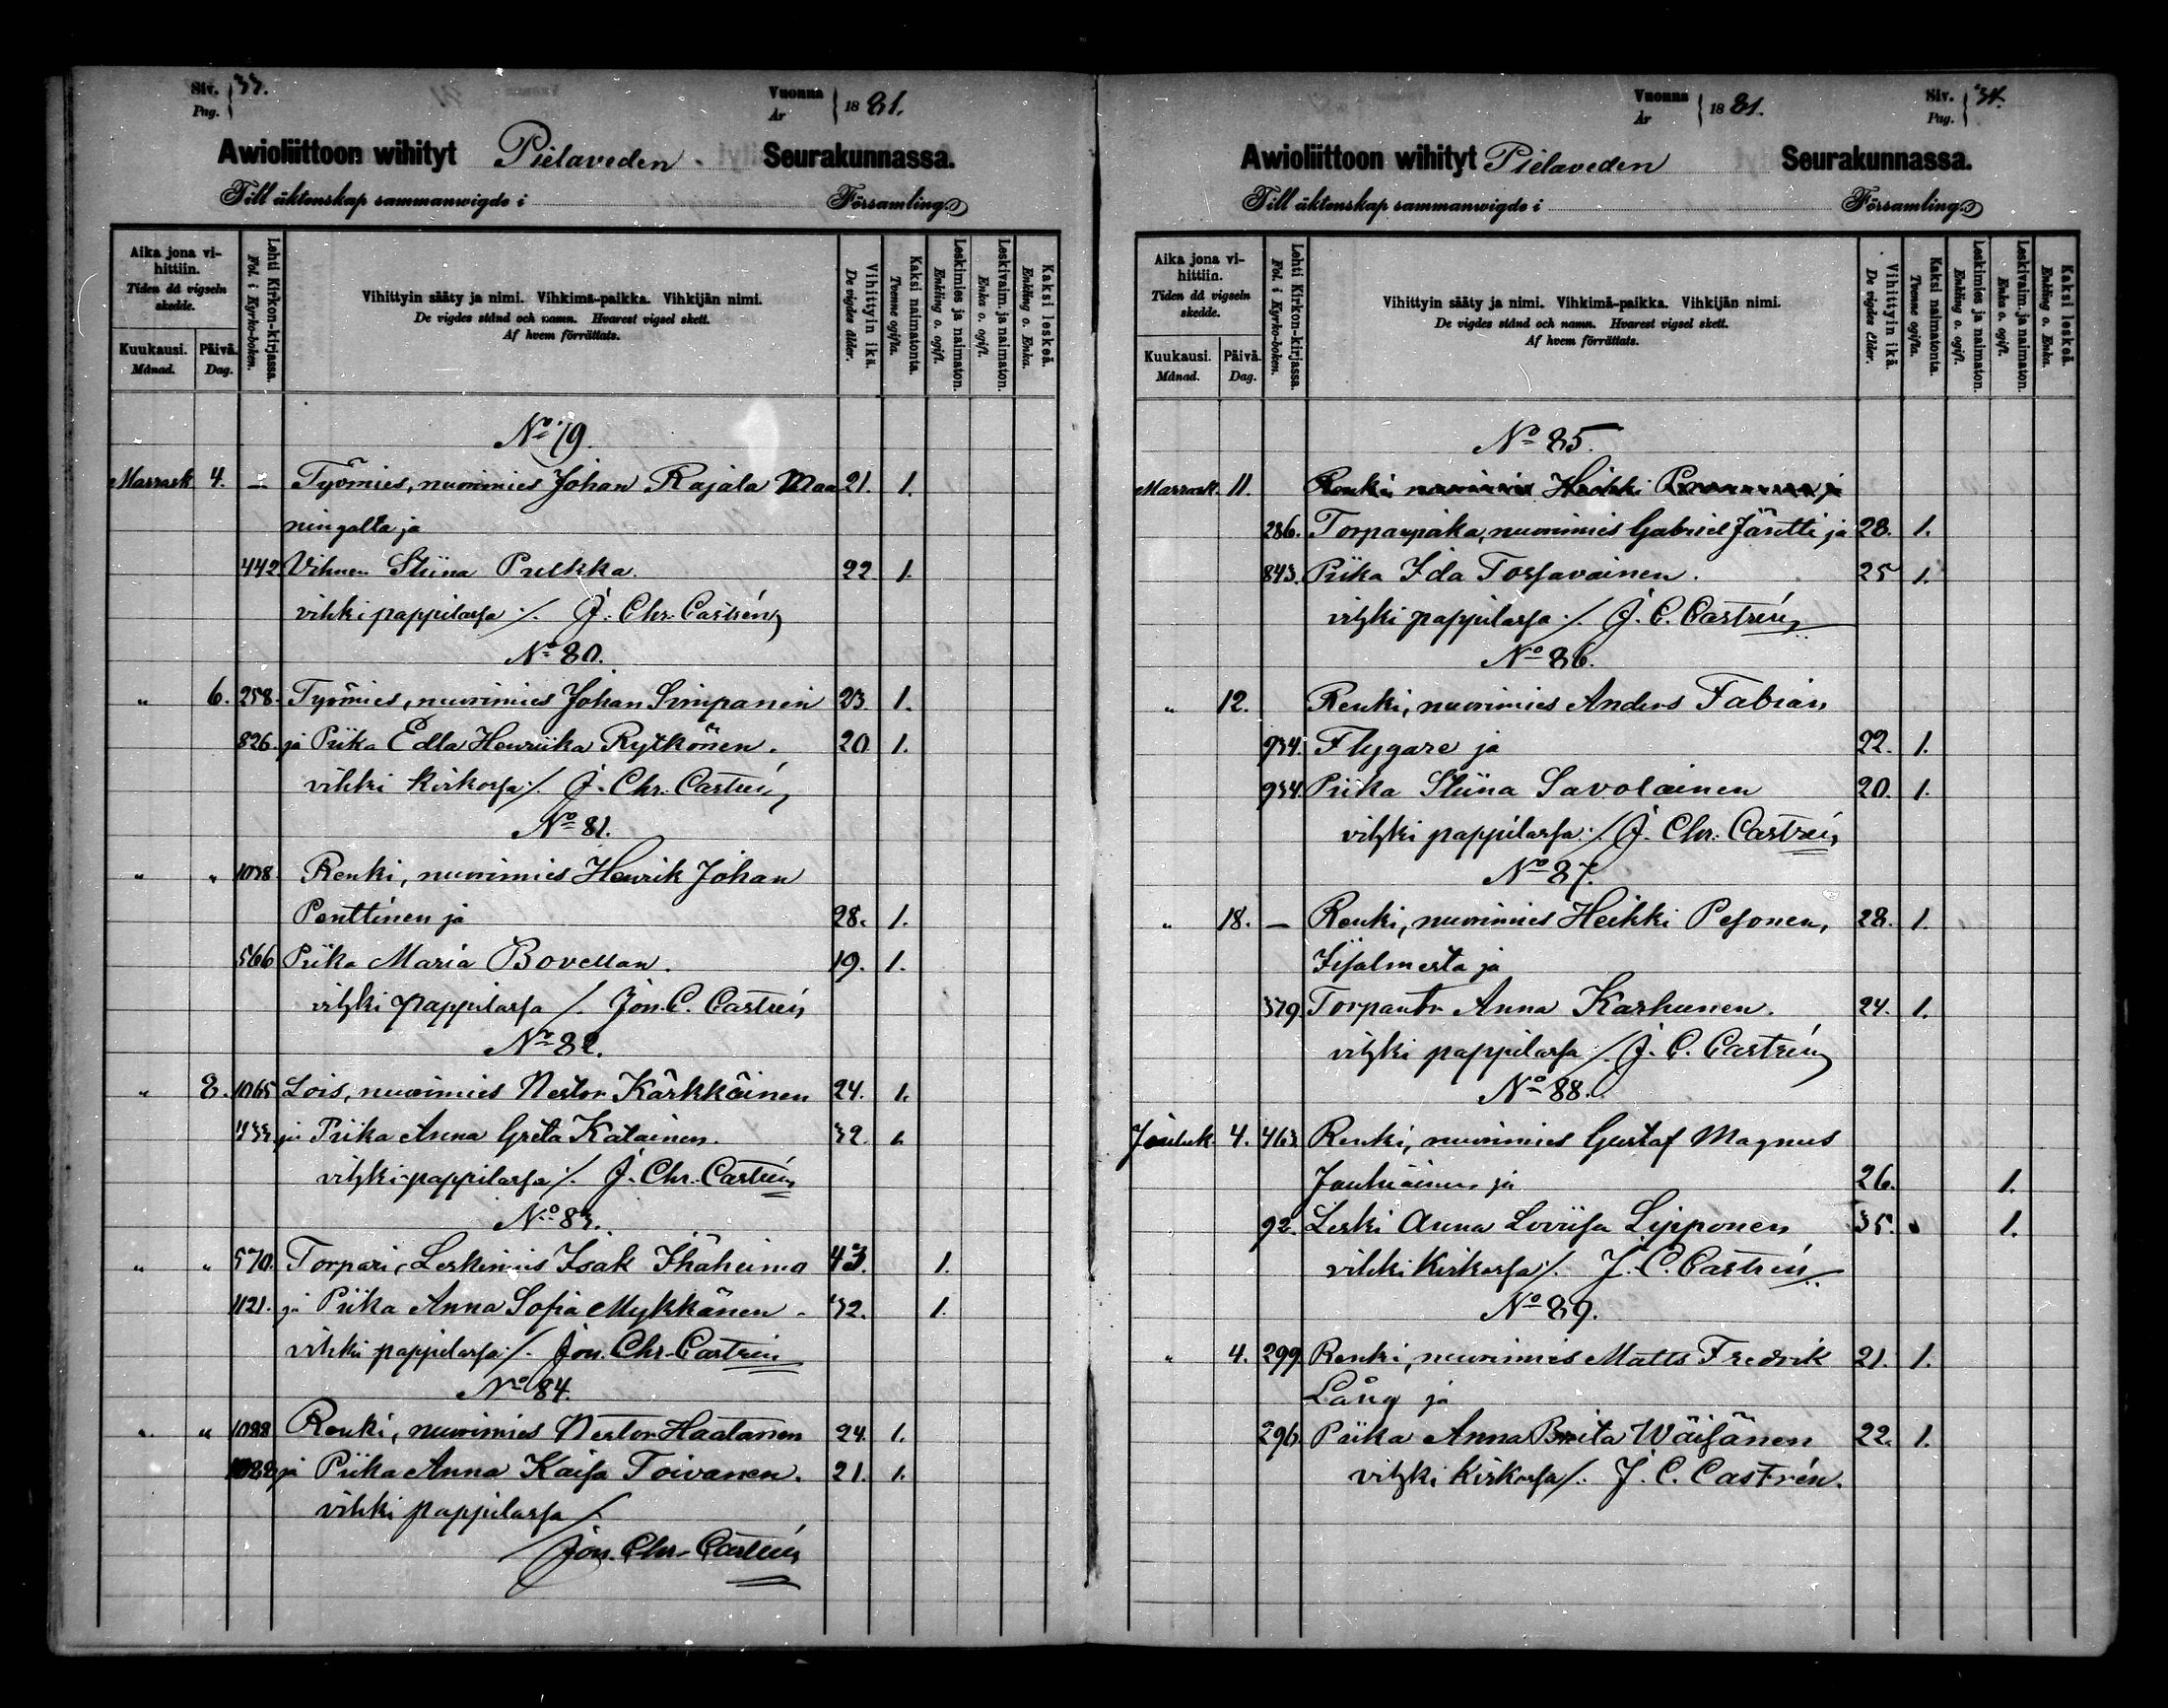 Siv. Pag. } 33.
Vuonna År } 1881.
Awioliittoon wihityt Pielaveden Seurakunnassa.
Till äktenskap sammanwigde i Församling
Aika jona vihittiin. Tiden då vigseln skedde.
Kuukausi. Månad.
Päivä. Dag.
Lehti Kirkon-kirjassa. Fol. i Kyrko-boken.
Vihittyin sääty ja nimi. Vihkimä-paikka. Vihkijän nimi.
De vigdes stånd och namn. Hvarest vigsel skett.
Af hvem förrättats.
Vihittyin ikä. De vigdes ålder.
Kaksi naimatonta. Tvenne ogifta.
Leskimies ja naimaton. Enkling o. ogift.
Leskivaim. ja naimaton. Enka o. ogift.
Kaksi leskeä. Enkling o. Enka.
No 79.
Marrask 4. — Työmies, nuorimies Johan Rajala Maa 21. 1.
ningalta ja
442 Stiina Pulkka. 22 1.
vihki pappilassa /. J. Chr. Castrén
No 80.
" 6. 258. Työmies, nuorimies Johan Simpanen 23. 1.
826. ja Piika Edla Henriika Rytkönen. 20 1.
vihki kirkossa /. J. Chr. Castrén
No 81.
" " 1098. Renki, nuorimies Henrik Johan
Penttinen ja 28. 1.
566 Piika Maria Bovellan. 19. 1.
vihki pappilassa /. Jon. C. Castrén
No 82.
" 8. 1065 Lois, nuorimies Nestor Kärkkäinen 24. 1.
ja Piika Anna Greta Katainen. 32. 1.
vihki pappilassa /. J. Chr. Castrén
No 83.
" " 570. Torpari, Leskimies Isak Ihäheimo 43. 1.
1121. ja Piika Anna Sofia Mykkänen. 32. 1.
vihki pappilassa /. Jon. Chr. Castrén
No 84.
" " 1088 Renki, nuorimies Nestor Haatanen 24. 1.
ja Piika Anna Kaisa Toivanen. 21. 1.
vihki pappilassa /.
Jon. Chr. Castrén
Vuonna År } 1881.
Siv. Pag. } 34.
Awioliittoon wihityt Pielaveden Seurakunnassa.
Till äktenskap sammanwigde i Församling
Aika jona vihittiin. Tiden då vigseln skedde.
Kuukausi. Månad.
Päivä. Dag.
Lehti Kirkon-kirjassa. Fol. i Kyrko-boken.
Vihittyin sääty ja nimi. Vihkimä-paikka. Vihkijän nimi.
De vigdes stånd och namn. Hvarest vigsel skett.
Af hvem förrättats.
Vihittyin ikä. De vigdes ålder.
Kaksi naimatonta. Tvenne ogifta.
Leskimies ja naimaton. Enkling o. ogift.
Leskivaim. ja naimaton. Enka o. ogift.
Kaksi leskeä. Enkling o. Enka.
No 85.
Marrask. 11. Renki nuorimies Heikki ja
286. Torparipoika, nuorimies Gabriel Jäntti ja 28. 1.
843. Piika Ida Tossavainen. 25 1.
vihki pappilassa /. J. C. Castrén
No 86.
" 12. Renki, nuorimies Anders Fabian
934. Flygare ja 22. 1.
934. Piika Stiina Savolainen 20. 1.
vihki pappilassa /. J. Chr. Castrén
No 87.
" 18. — Renki, nuorimies Heikki Pesonen, 28. 1.
Iisalmesta ja
379 Torpantr Anna Karhunen. 24. 1.
vihki pappilassa /. J. C. Castrén
No 88.
Jouluk 4. 463. Renki, nuorimies Gustaf Magnus
Jauhiainen ja 26. 1.
92. Leski Anna Loviisa Lipponen 35. 1.
vihki kirkossa /. J. C. Castrén
No 89.
" 4. 299 Renki, nuorimies Matts Fredrik 21. 1.
Lång ja
296 Piika Anna Brita Wäisänen 22. 1.
vihki kirkossa /. J. C. Castrén.